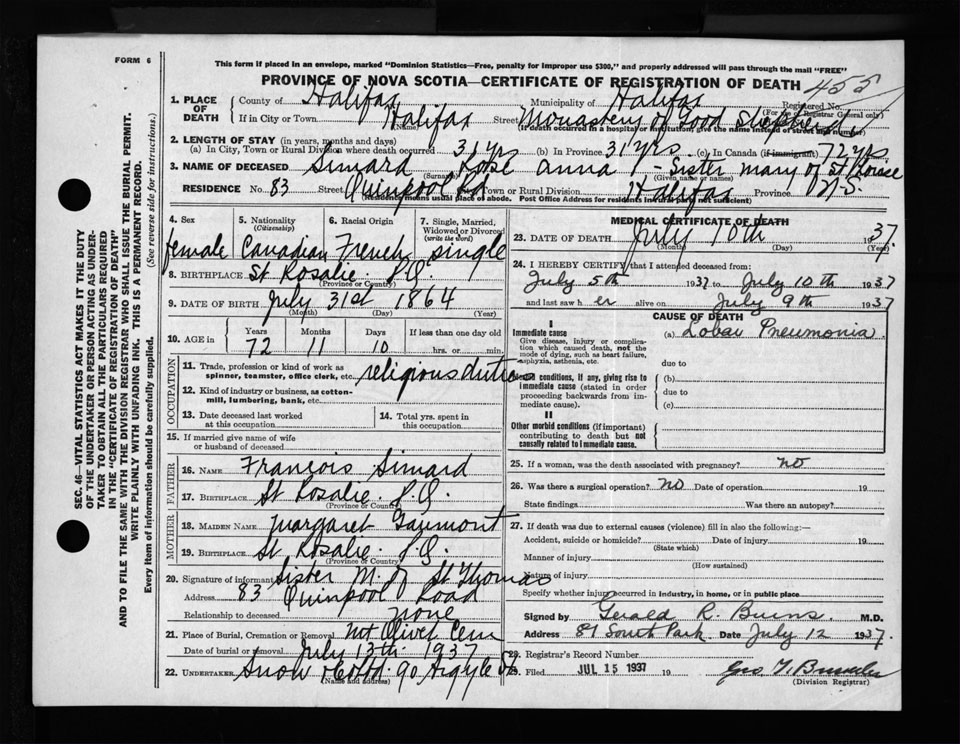 FORM 6
This form if placed in an envelope, marked "Dominion Statistics—Free, penalty for improper use $300," and properly addressed will pass through the mail "FREE"
PROVINCE OF NOVA SCOTIA—CERTIFICATE OF REGISTRATION OF DEATH 455
1. PLACE OF DEATH County of Halifax Municipality of Halifax Registered No.
(For use of Registrar General only)
If in City or Town Halifax Street Monastery of Good Shepherd
(Name) (If death occurred in a hospital or institution, give the name instead of street and number)
2. LENGTH OF STAY (in years, months and days)
(a) In City, Town or Rural Division where death occurred 31 yrs (b) In Province 31 yrs. (c) In Canada (if immigrant) 72 yrs.
3. NAME OF DECEASED Simard Rose Anna Sister Mary of St
(Surname) (Given or names)
RESIDENCE No. 83 Street Quinpool Rd City, Town or Rural Division Halifax Province N.S.
(Residence means usual place of abode. Post Office Address for residents in rural parts not sufficient)
4. Sex female
5. Nationality (Citizenship) Canadian
6. Racial Origin French
7. Single, Married, Widowed or Divorced (write the word) single
8. BIRTHPLACE St Rosalie. P.Q.
(Province or Country)
9. DATE OF BIRTH July 31st 1864
(Month) (Day) (Year)
10. AGE in Years 72 Months 11 Days 10 If less than one day old hrs. or min.
OCCUPATION
11. Trade, profession or kind of work as spinner, teamster, office clerk, etc. religious duties
12. Kind of industry or business, as cotton-mill, lumbering, bank, etc.
13. Date deceased last worked at this occupation
14. Total yrs. spent in this occupation
15. If married give name of wife or husband of deceased
FATHER
16. NAME François Simard
17. BIRTHPLACE St Rosalie. P.Q.
(Province or Country)
MOTHER
18. MAIDEN NAME Margaret Gaumont
19. BIRTHPLACE St Rosalie. P.Q.
(Province or Country)
20. Signature of informant Sister M. of St Thomas
Address 83 Quinpool Road
Relationship to deceased none
21. Place of Burial, Cremation or Removal Mt Olivet Cem
Date of burial or removal July 13th. 1937
22. UNDERTAKER Snow & Co Ltd. 90 Argyle St
(Name and address)
MEDICAL CERTIFICATE OF DEATH
23. DATE OF DEATH July 10th 1937.
(Month) (Day) (Year)
24. I HEREBY CERTIFY that I attended deceased from:
July 5th 1937 to July 10th 1937
and last saw h er alive on July 9th 1937
CAUSE OF DEATH
I
Immediate cause (a) Lobar Pneumonia
Give disease, injury or complication which caused death, not the mode of dying, such as heart failure, asphyxia, asthenia, etc.
due to
Morbid conditions, if any, giving rise to immediate cause (stated in order proceeding backwards from immediate cause).
(b)
due to
(c)
II
Other morbid conditions (if important) contributing to death but not causally related to immediate cause.
25. If a woman, was the death associated with pregnancy? no
26. Was there a surgical operation? no Date of operation 19
State findings Was there an autopsy?
27. If death was due to external causes (violence) fill in also the following:—
Accident, suicide or homicide? Date of injury 19
(State which)
Manner of injury
(How sustained)
Nature of injury
Specify whether injury occurred in industry, in home, or in public place
Signed by Gerald R. Burns. M.D.
Address 89 South Park. Date July 12 1937.
28. Registrar's Record Number
29. Filed JUL 15 1937 19
(Division Registrar)
SEC. 46—VITAL STATISTICS ACT MAKES IT THE DUTY
OF THE UNDERTAKER OR PERSON ACTING AS UNDER-
TAKER TO OBTAIN ALL THE PARTICULARS REQUIRED
IN THE "CERTIFICATE OF REGISTRATION OF DEATH"
AND TO FILE THE SAME WITH THE DIVISION REGISTRAR WHO SHALL ISSUE THE BURIAL PERMIT.
WRITE PLAINLY WITH UNFADING INK. THIS IS A PERMANENT RECORD.
Every item of information should be carefully supplied. (See reverse side for instructions.)